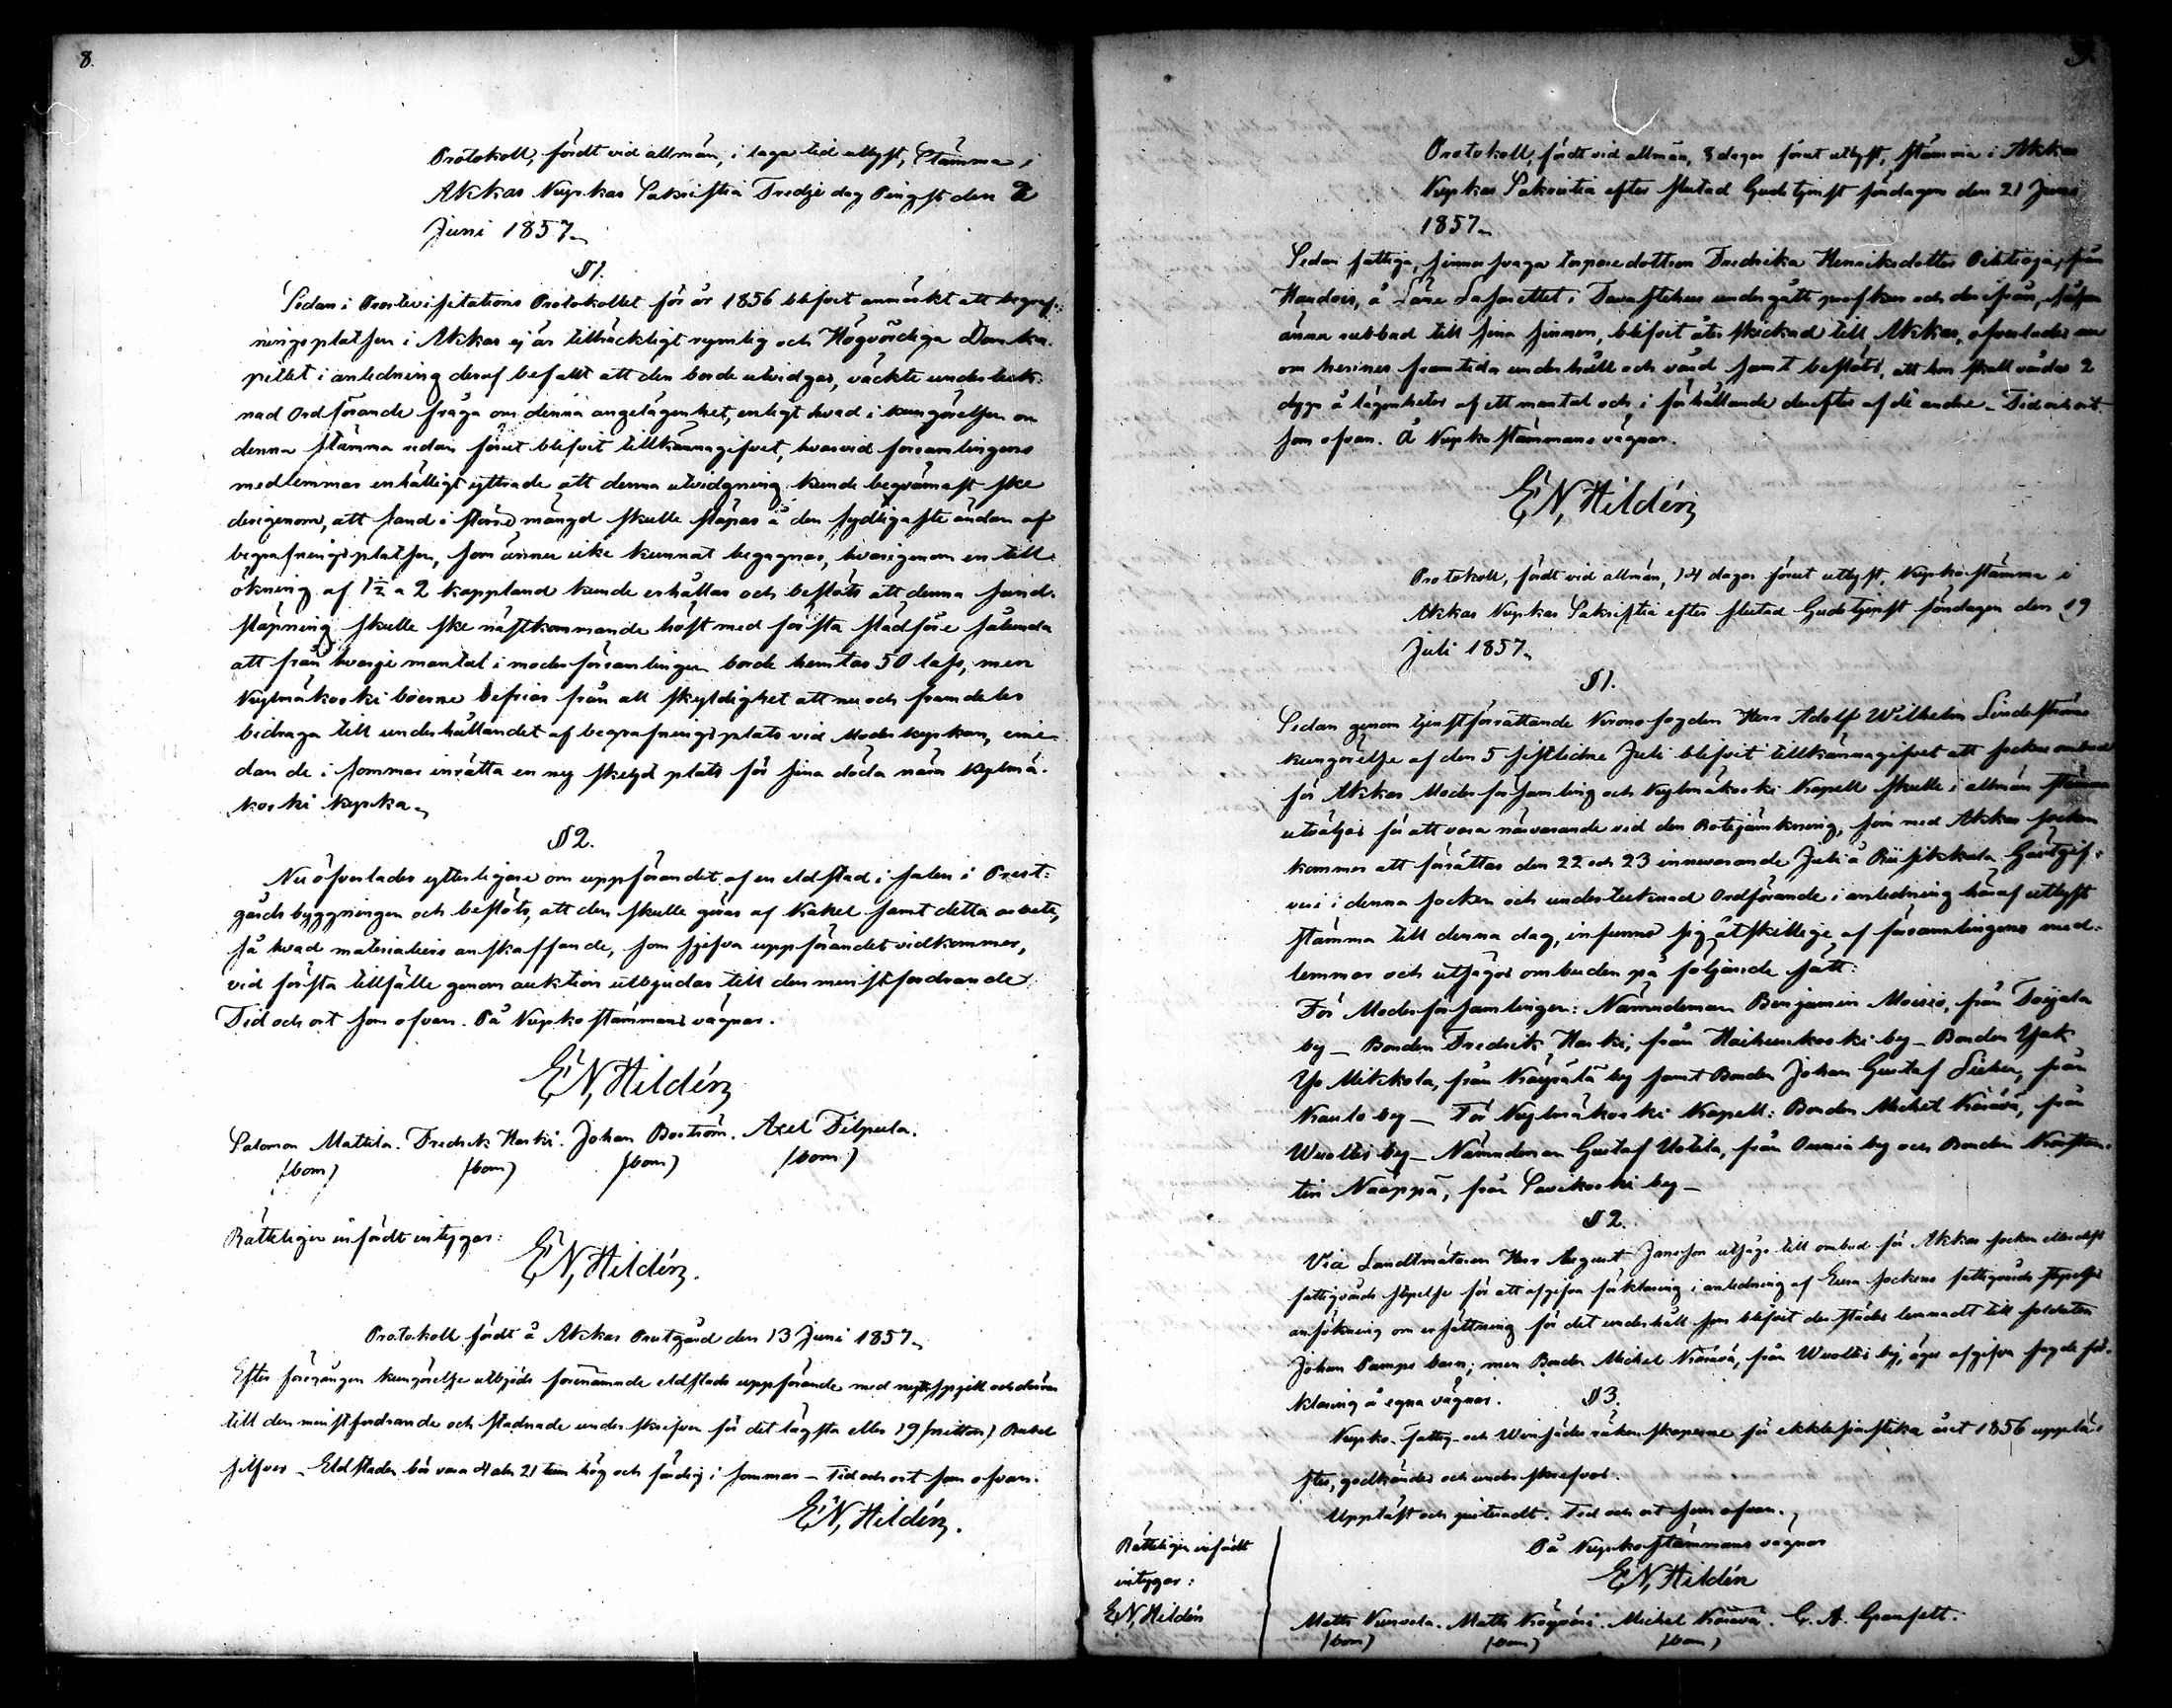 8.
Protokoll, fördt vid allmän, i laga tid utlyst, Stämma i
Akkas Kyrkas Sakristia Tredje dag Pingst den 2
Juni 1857.
§ 1.
Sedan i Prostevisitations Protokollet för år 1856 blifvit anmärkt att begraf-
ningsplatsen i Akkas ej är tillräckligt rymlig och Högvördiga Domka-
pitlet i anledning deraf befallt att den borde utvidgas, väckte underteck-
nad Ordförande fråga om denna angelägenhet, enligt hvad i kungörelsen om
denna stämma redan förut blifvit tillkännagifvet, hvarvid församlingens
medlemmar enhälligt yttrade att denna utvidgning kunde beqvämast ske
derigenom, att sand i större mängd skulle släpas å den sydligaste ändan af
begrafningsplatsen, som ännu icke kunnat begagnas, hvarigenom en till-
ökning af 1½ a 2 kappland kunde erhållas och beslöts att denna sand-
släpning skulle ske nästkommande höst med första slädföre sålunda
att från hvarje mantal i moderförsamlingen borde hemtas 50 lass, men
Kylmäkoski boerne befrias från all skyldighet att nu och framdeles
bidraga till underhållandet af begrafningsplats vid Moderkyrkan, eme-
dan de i sommar inrätta en ny skeljd plats för sina döda nära Kylmä-
koski Kyrka.
§ 2.
Nu öfverlades ytterligare om uppförandet af en eldstad i salen i Prest-
gårds byggningen och beslöts, att den skulle göras af Kakel samt detta arbete,
så hvad materialiers anskaffande, som sjelfva uppförandet vidkommer,
vid första tillfälle genom auktion utbjudas till den minstfordrande
Tid och ort som ofvan. På Kyrkostämmans vägnar.
E. N. Hildén
Salomon Mattila. Fredrik Harki. Johan Boström. Axel Filpula.
(bom) (bom) (bom) (bom)
Rätteligen infördt intygar:
E. N. Hildén.
Protokoll fördt å Akkas Prestgård den 13 Juni 1857.
Efter föregången kungörelse utbjöds förenämnde eldstads uppförande med nytt spjell och
till den minstfordrande och stadnade underskrefven för det lägsta eller 19 (nitton) Rubel
silfver. Eldstaden bör vara 4 aln 21 tum hög och färdig i sommar — Tid och ort som ofvan.
E. N. Hildén.
9.
Protokoll, fördt vid allmän, 8 dagar förut utlyst, stämma i Akkas
Kyrkas Sakristia efter slutad Gudstjenst söndagen den 21 Juni
1857.
Sedan fattiga, sinnessvaga torparedottren Fredrika Henriksdotter från
å Läne Lasarettet i Tavastehus undergått och derifrån,
ännu rubbad till sina sinnen, blifvit återskickad till Akkas, öfverlades
om hennes framtida underhåll och vård samt beslöts, att hon skall vårdas 2
dygn å lägenheter af ett mantal och i förhållande derefter af de andre. Tid och ort
som ofvan. Å Kyrkostämmans vägnar.
E. N. Hildén
Protokoll, fördt vid allmän, 14 dagar förut utlyst, Kyrkostämma i
Akkas Kyrkas Sakristia efter slutad Gudstjenst söndagen den 19
Juli 1857.
§ 1.
Sedan genom tjenstförrättande Kronofogden Herr Adolf Wilhelm Lindeströms
kungörelse af den 5 sistledne Juli blifvit tillkännagifvet att sockneombud
för Akkas Moderförsamling och Kylmäkoski Kapell skulle i allmän stämma
utväljas för att vara närvarande vid den Rotejämkning, som med Akkas socken
kommer att förrättas den 22 och 23 innevarande Juli å Riisikkala Gästgif-
veri i denna socken och undertecknad Ordförande i anledning häraf utlyst
stämma till denna dag, infunno sig åtskillige af församlingens med-
lemmar och utsågos ombuden på följande sätt:
För Moderförsamlingen: Nämndeman Benjamin Moisio, från Toijala
by — Bonden Fredrik Harki, från Haihunkoski by — Bonden
Yr Mikkola, från Kärpälä by samt Bonden Johan Gustaf från
by — För Kylmäkoski Kapell: Bonden Michel från
Wuoltis by — Nämndeman Gustaf Uotila, från by och Bonden Konstan-
tin Naappa, från Savikoski by —
§ 2.
Vice Landtmätaren Herr August Jansson utsågs till ombud för Akkas socken eller dess
fattigvårds styrelse för att afgifva förklaring i anledning af Eura sockens fattigvårds styrelses
ansökning om ersättning för det underhåll som blifvit derstädes lemnadt till soldaten
Johan Pamps barn; men Bonden Michel från Wuoltis by, äger afgifva sagde för-
klaring å egna vägnar.
§ 3.
Kyrko- fattig- och räkenskaperne för ekklesiastika året 1856 upplä-
stes, godkändes och underskrefvos.
Uppläst och justeradt. Tid och ort som ofvan.
På Kyrkostämmans vägnar
E. N. Hildén
Rätteligen infördt
intygar:
E. N. Hildén
Matts Kurvola. Matts Michel G. A. Granfelt.
(bom) (bom) (bom)